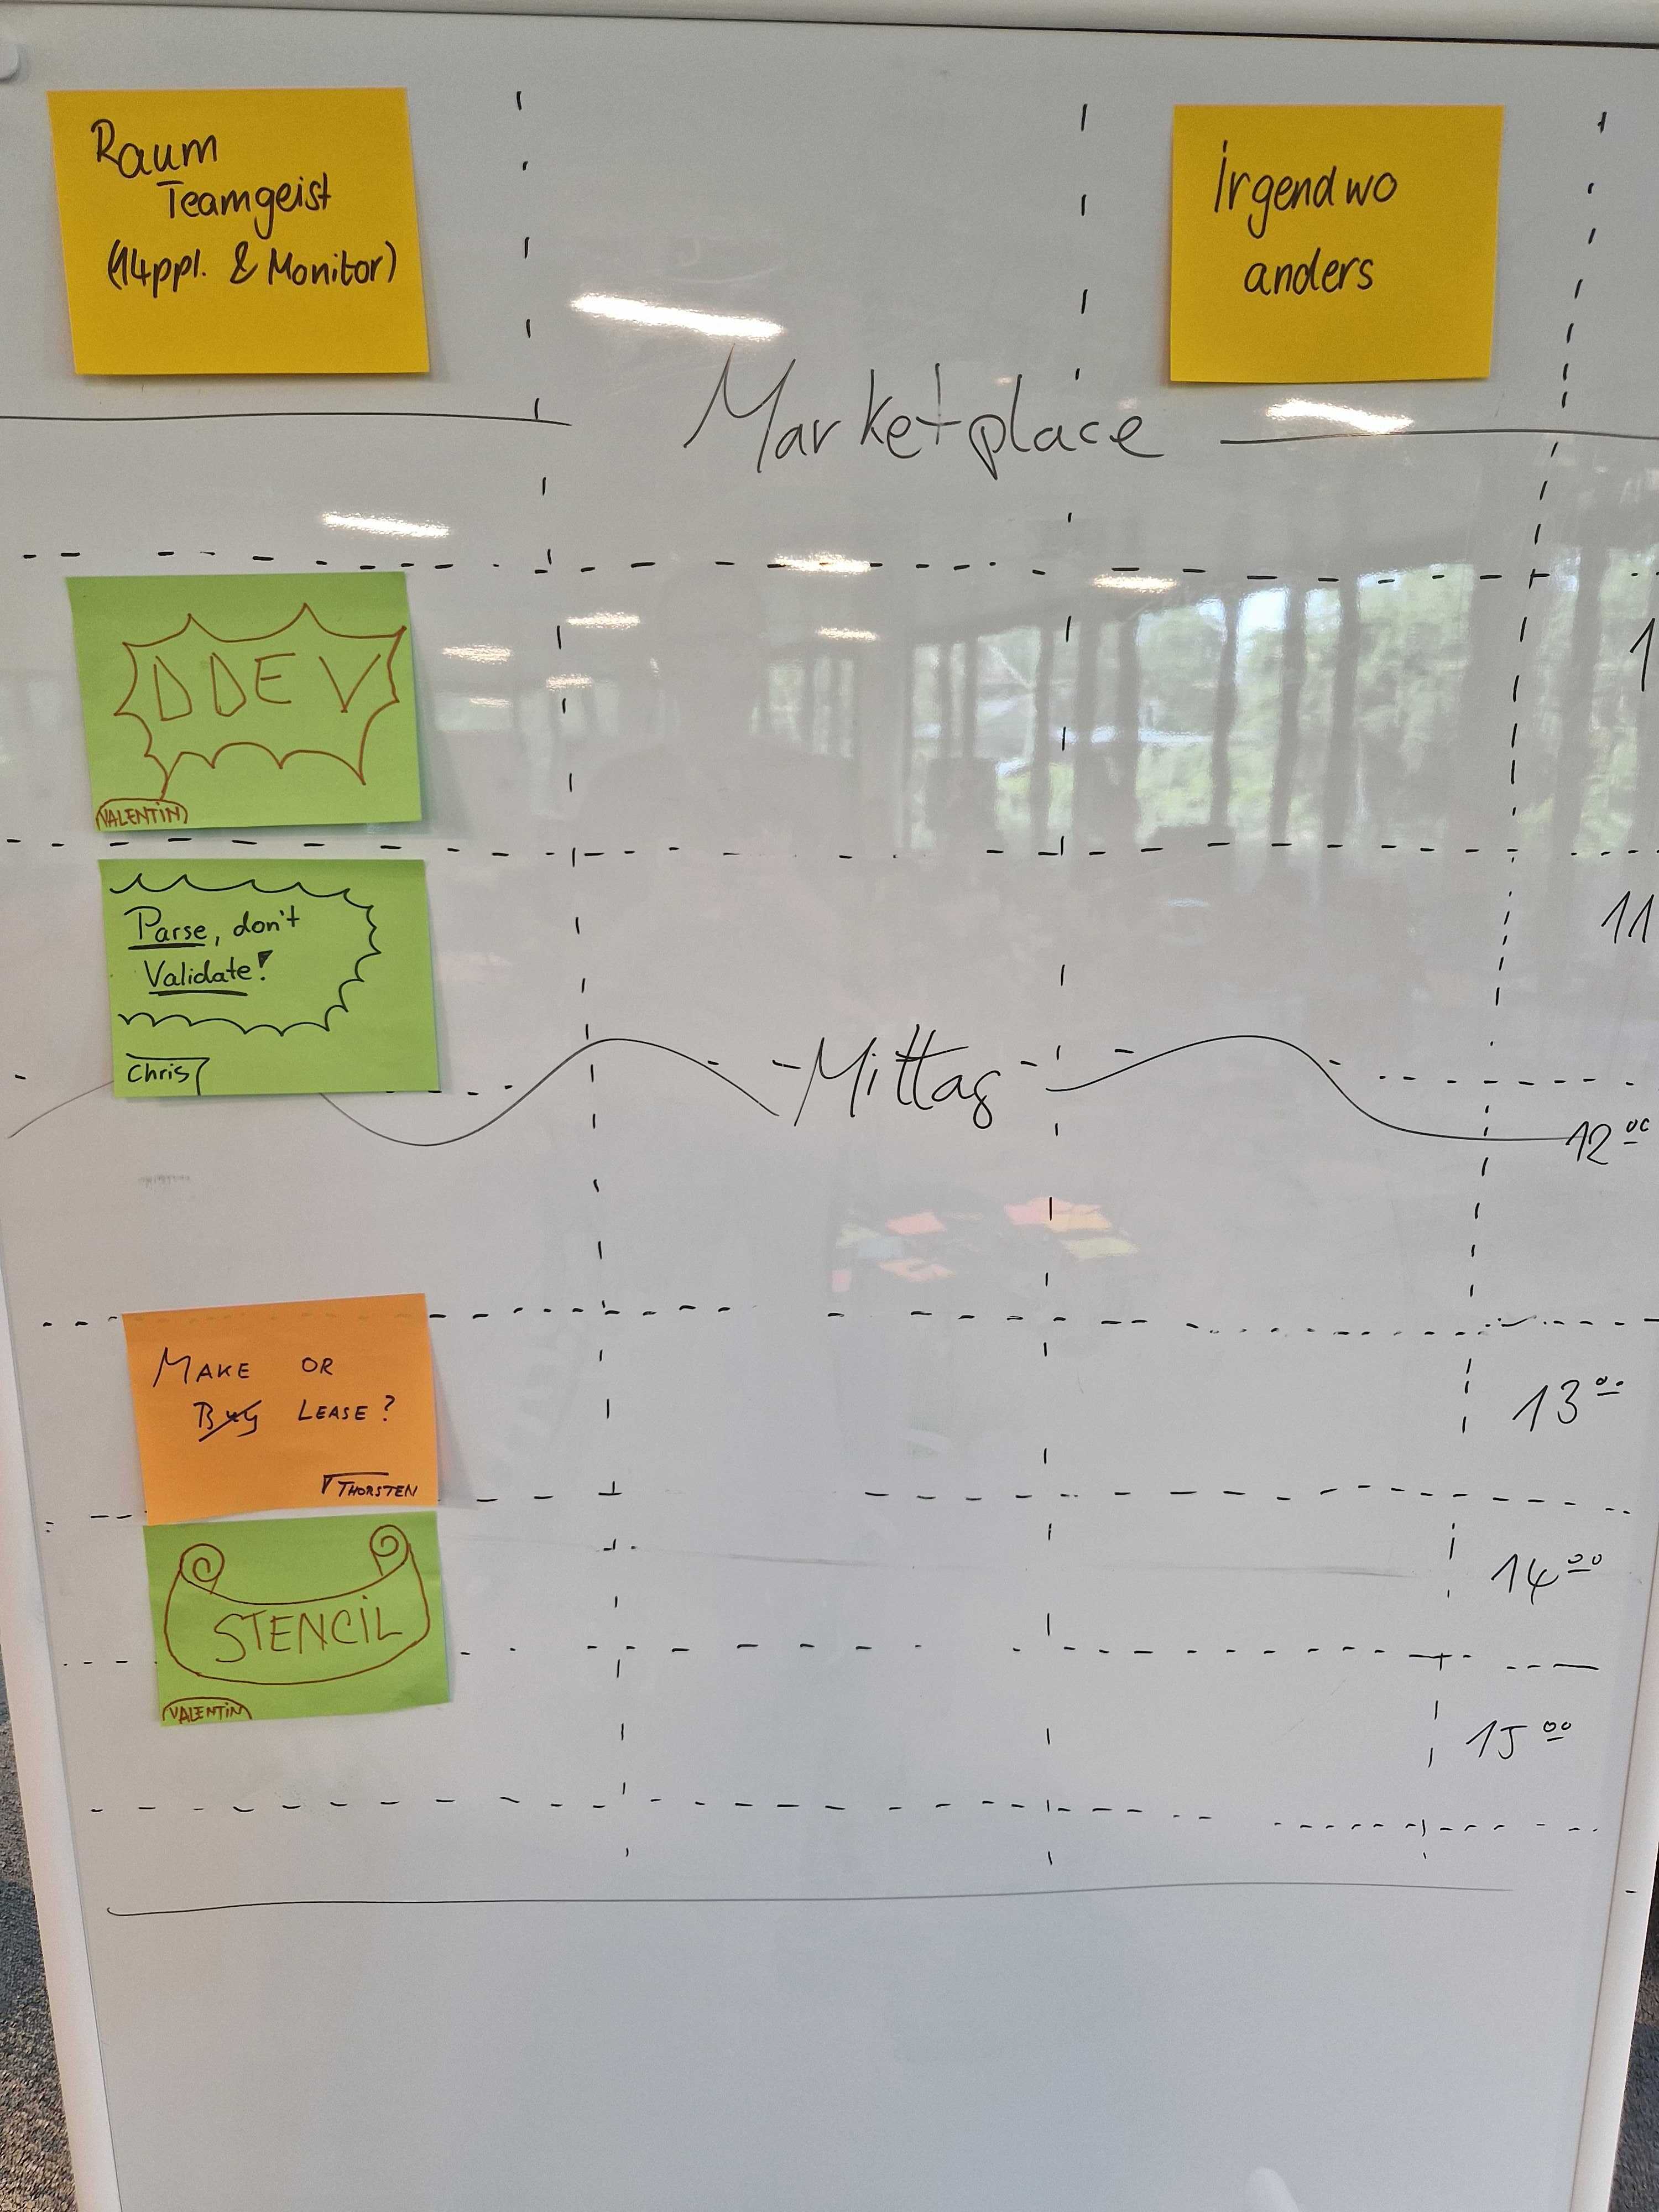 Raum
Teamgeist
(14ppl. & Monitor)
irgendwo
anders
Marketplace
DDEV
VALENTIN
1
Parse, don't
Validate!
Chris
11
Mittag
12 00
MAKE OR
Buy LEASE?
THORSTEN
13 00
STENCIL
VALENTIN
14 00
15 00